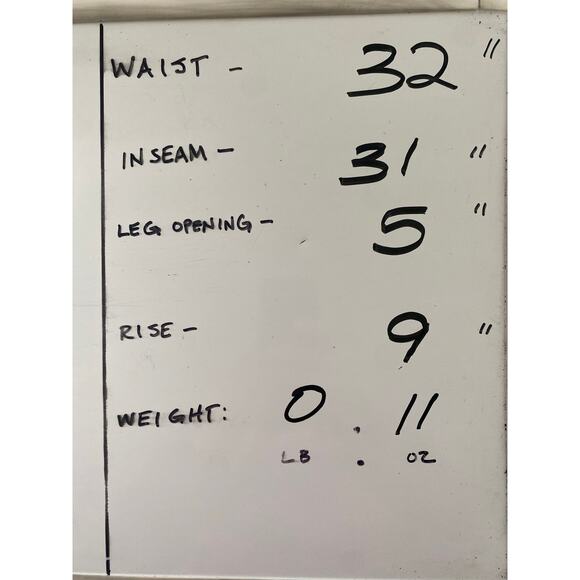 WAIST - 32 "
INSEAM - 31 "
LEG OPENING - 5 "
RISE - 9 "
WEIGHT: 0 . 11
LB . OZ